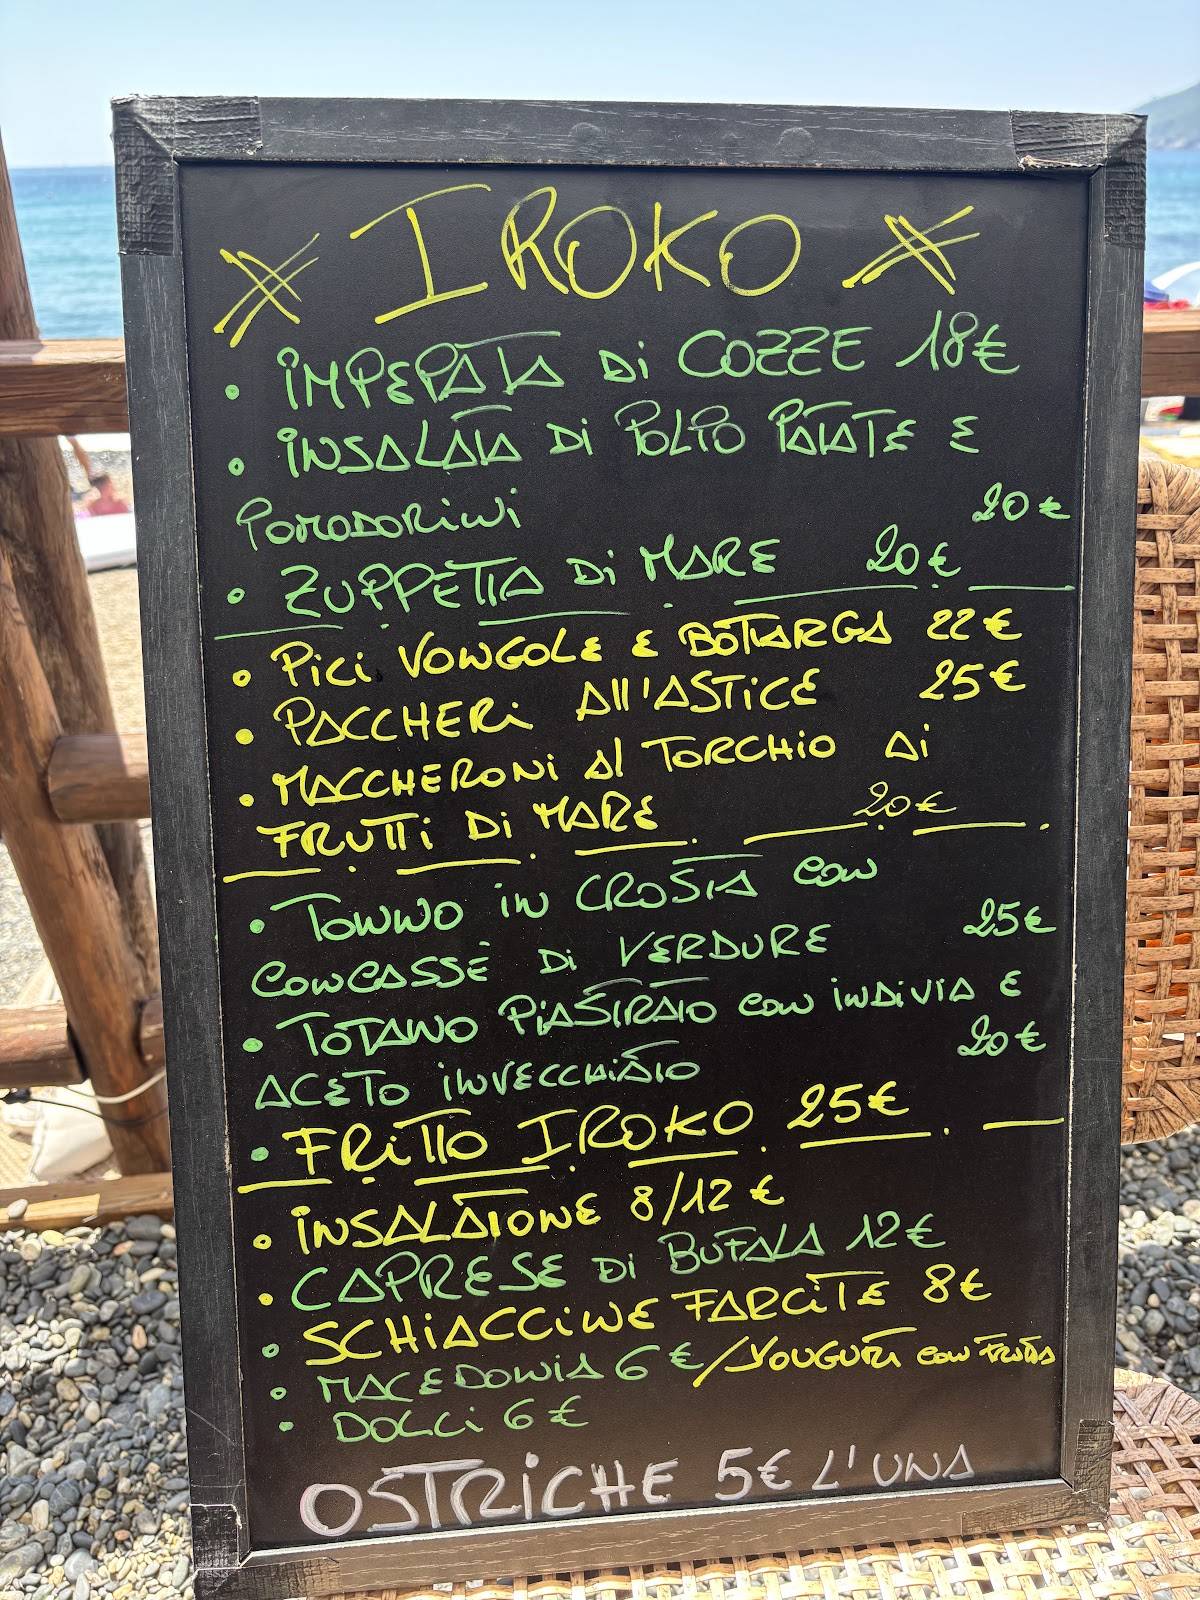 IROKO
• IMPEPATA DI COZZE 18€
• INSALATA DI POLPO PATATE E
POMODORINI 20€
• ZUPPETTA DI MARE 20€
• PICI VONGOLE E BOTTARGA 22€
• PACCHERI All'ASTICE 25€
• MACCHERONI Al TORCHIO AI
FRUTTI DI MARE 20€
• TONNO IN CROSTA CON
CONCASSÈ DI VERDURE 25€
• TOTANO PIASTRATO CON INDIVIA E
ACETO INVECCHIATO 20€
• FRITTO IROKO 25€
• INSALATONE 8/12 €
• CAPRESE DI BUFALA 12€
• SCHIACCINE FARCITE 8€
• MACEDONIA 6€/YOUGURT CON FRUTTA
• DOLCI 6€
OSTRICHE 5€ L'UNA